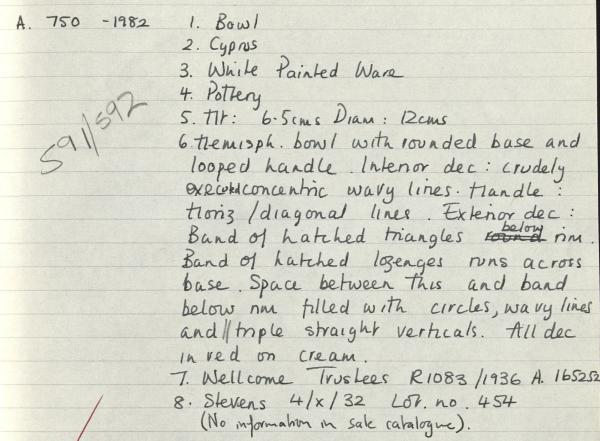 A. 750 -1982
1. Bowl
2. Cyprus
3. White Painted Ware
4. Pottery
5. Ht: 6.5cms Diam: 12cms
591/592
6. Hemisph. bowl with rounded base and
looped handle. Interior dec: crudely
executed concentric wavy lines. Handle:
Horiz/diagonal lines. Exterior dec:
Band of hatched triangles below rim.
Band of hatched lozenges runs across
base. Space between this and band
below rim filled with circles, wavy lines
and || triple straight verticals. All dec
in red on cream.
7. Wellcome Trustees R1083/1936 A. 165252
8. Stevens 4/x/32 Lot. no. 454
(No information in sale catalogue).